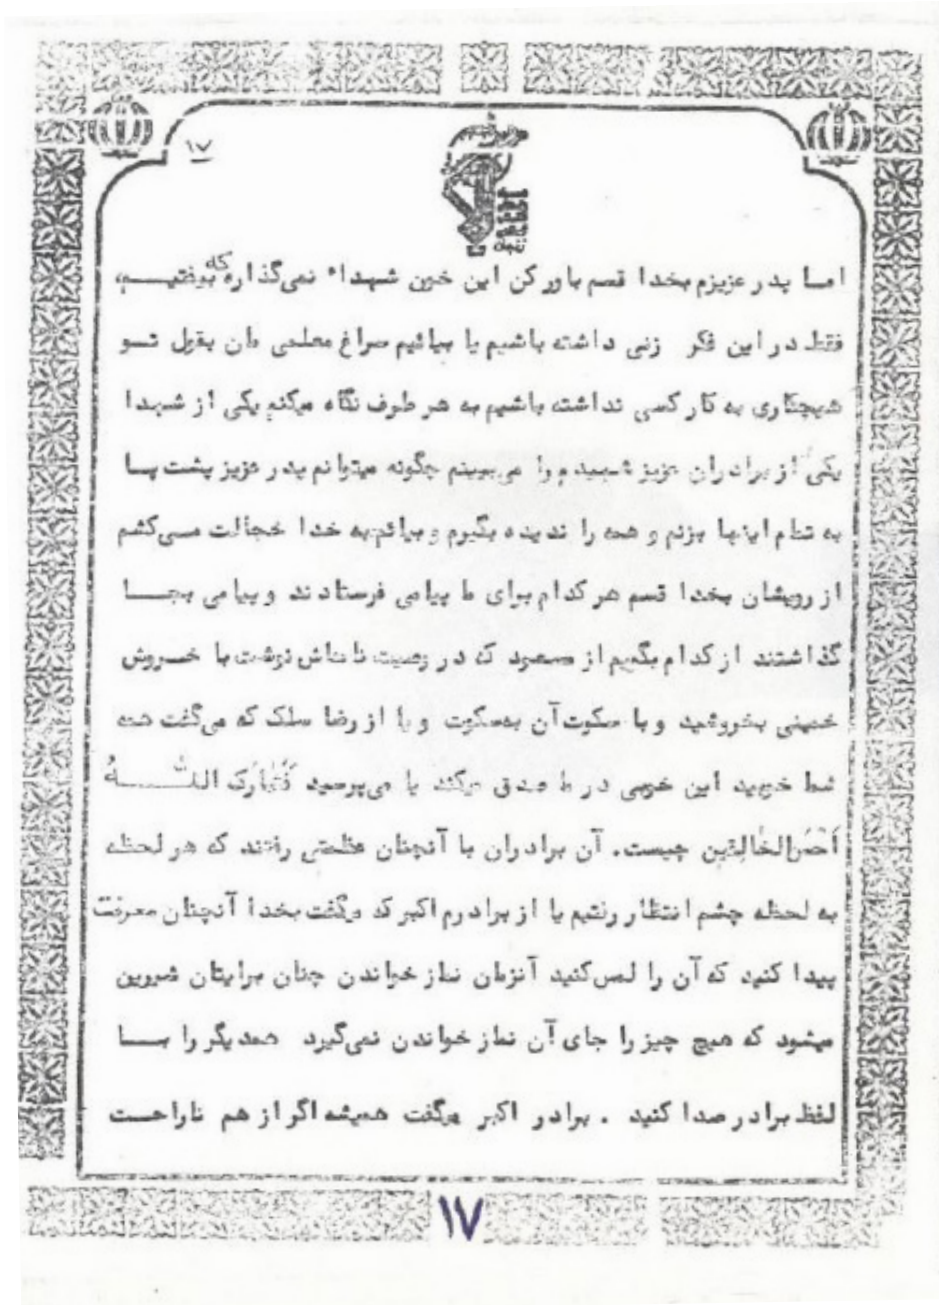 ۱۷
اما پدر عزیزم بخدا قسم باور کن این خون شهداء نمی‌گذاره که بیفتیم
فقط در این فکر زنی داشته باشیم یا بیائیم سراغ معلمی مان بقول تو
هیچکاری به کار کسی نداشته باشیم به هر طرف نگاه میکنم یکی از شهدا
یکی از برادران عزیز شهیدم را می‌بینم چگونه میتوانم پدر عزیز پشت پا
به تمام اینها بزنم و همه را ندیده بگیرم و بیائم به خدا خجالت می‌کشم
از رویشان بخدا قسم هر کدام برای ما پیامی فرستادند و پیامی بجا
گذاشتند از کدام بگویم از مسعود که در وصیت نامه‌اش نوشت با خروش
خمینی بخروشید و با سکوت آن بسکوت و یا از رضا ملک که می‌گفت همه
شما خوبید این خوبی در ما صدق میکند یا می‌پرسید فَتَبارَکَ اللهُ
اَحْسَنُ الخالِقین چیست. آن برادران با آنچنان عظمتی رفتند که هر لحظه
به لحظه چشم انتظار رفتیم یا از برادرم اکبر که میگفت بخدا آنچنان معرفت
پیدا کنید که آن را لمس کنید آنزمان نماز خواندن چنان برایتان شیرین
میشود که هیچ چیز را جای آن نماز خواندن نمی‌گیرد همدیگر را با
لفظ برادر صدا کنید . برادر اکبر میگفت همیشه اگر از هم ناراحت
۱۷